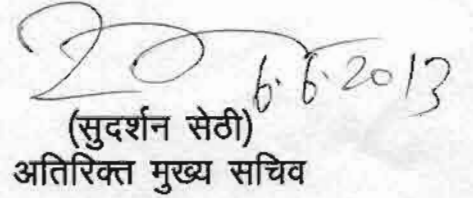 6.6.2013
(सुदर्शन सेठी)
अतिरिक्त मुख्य सचिव